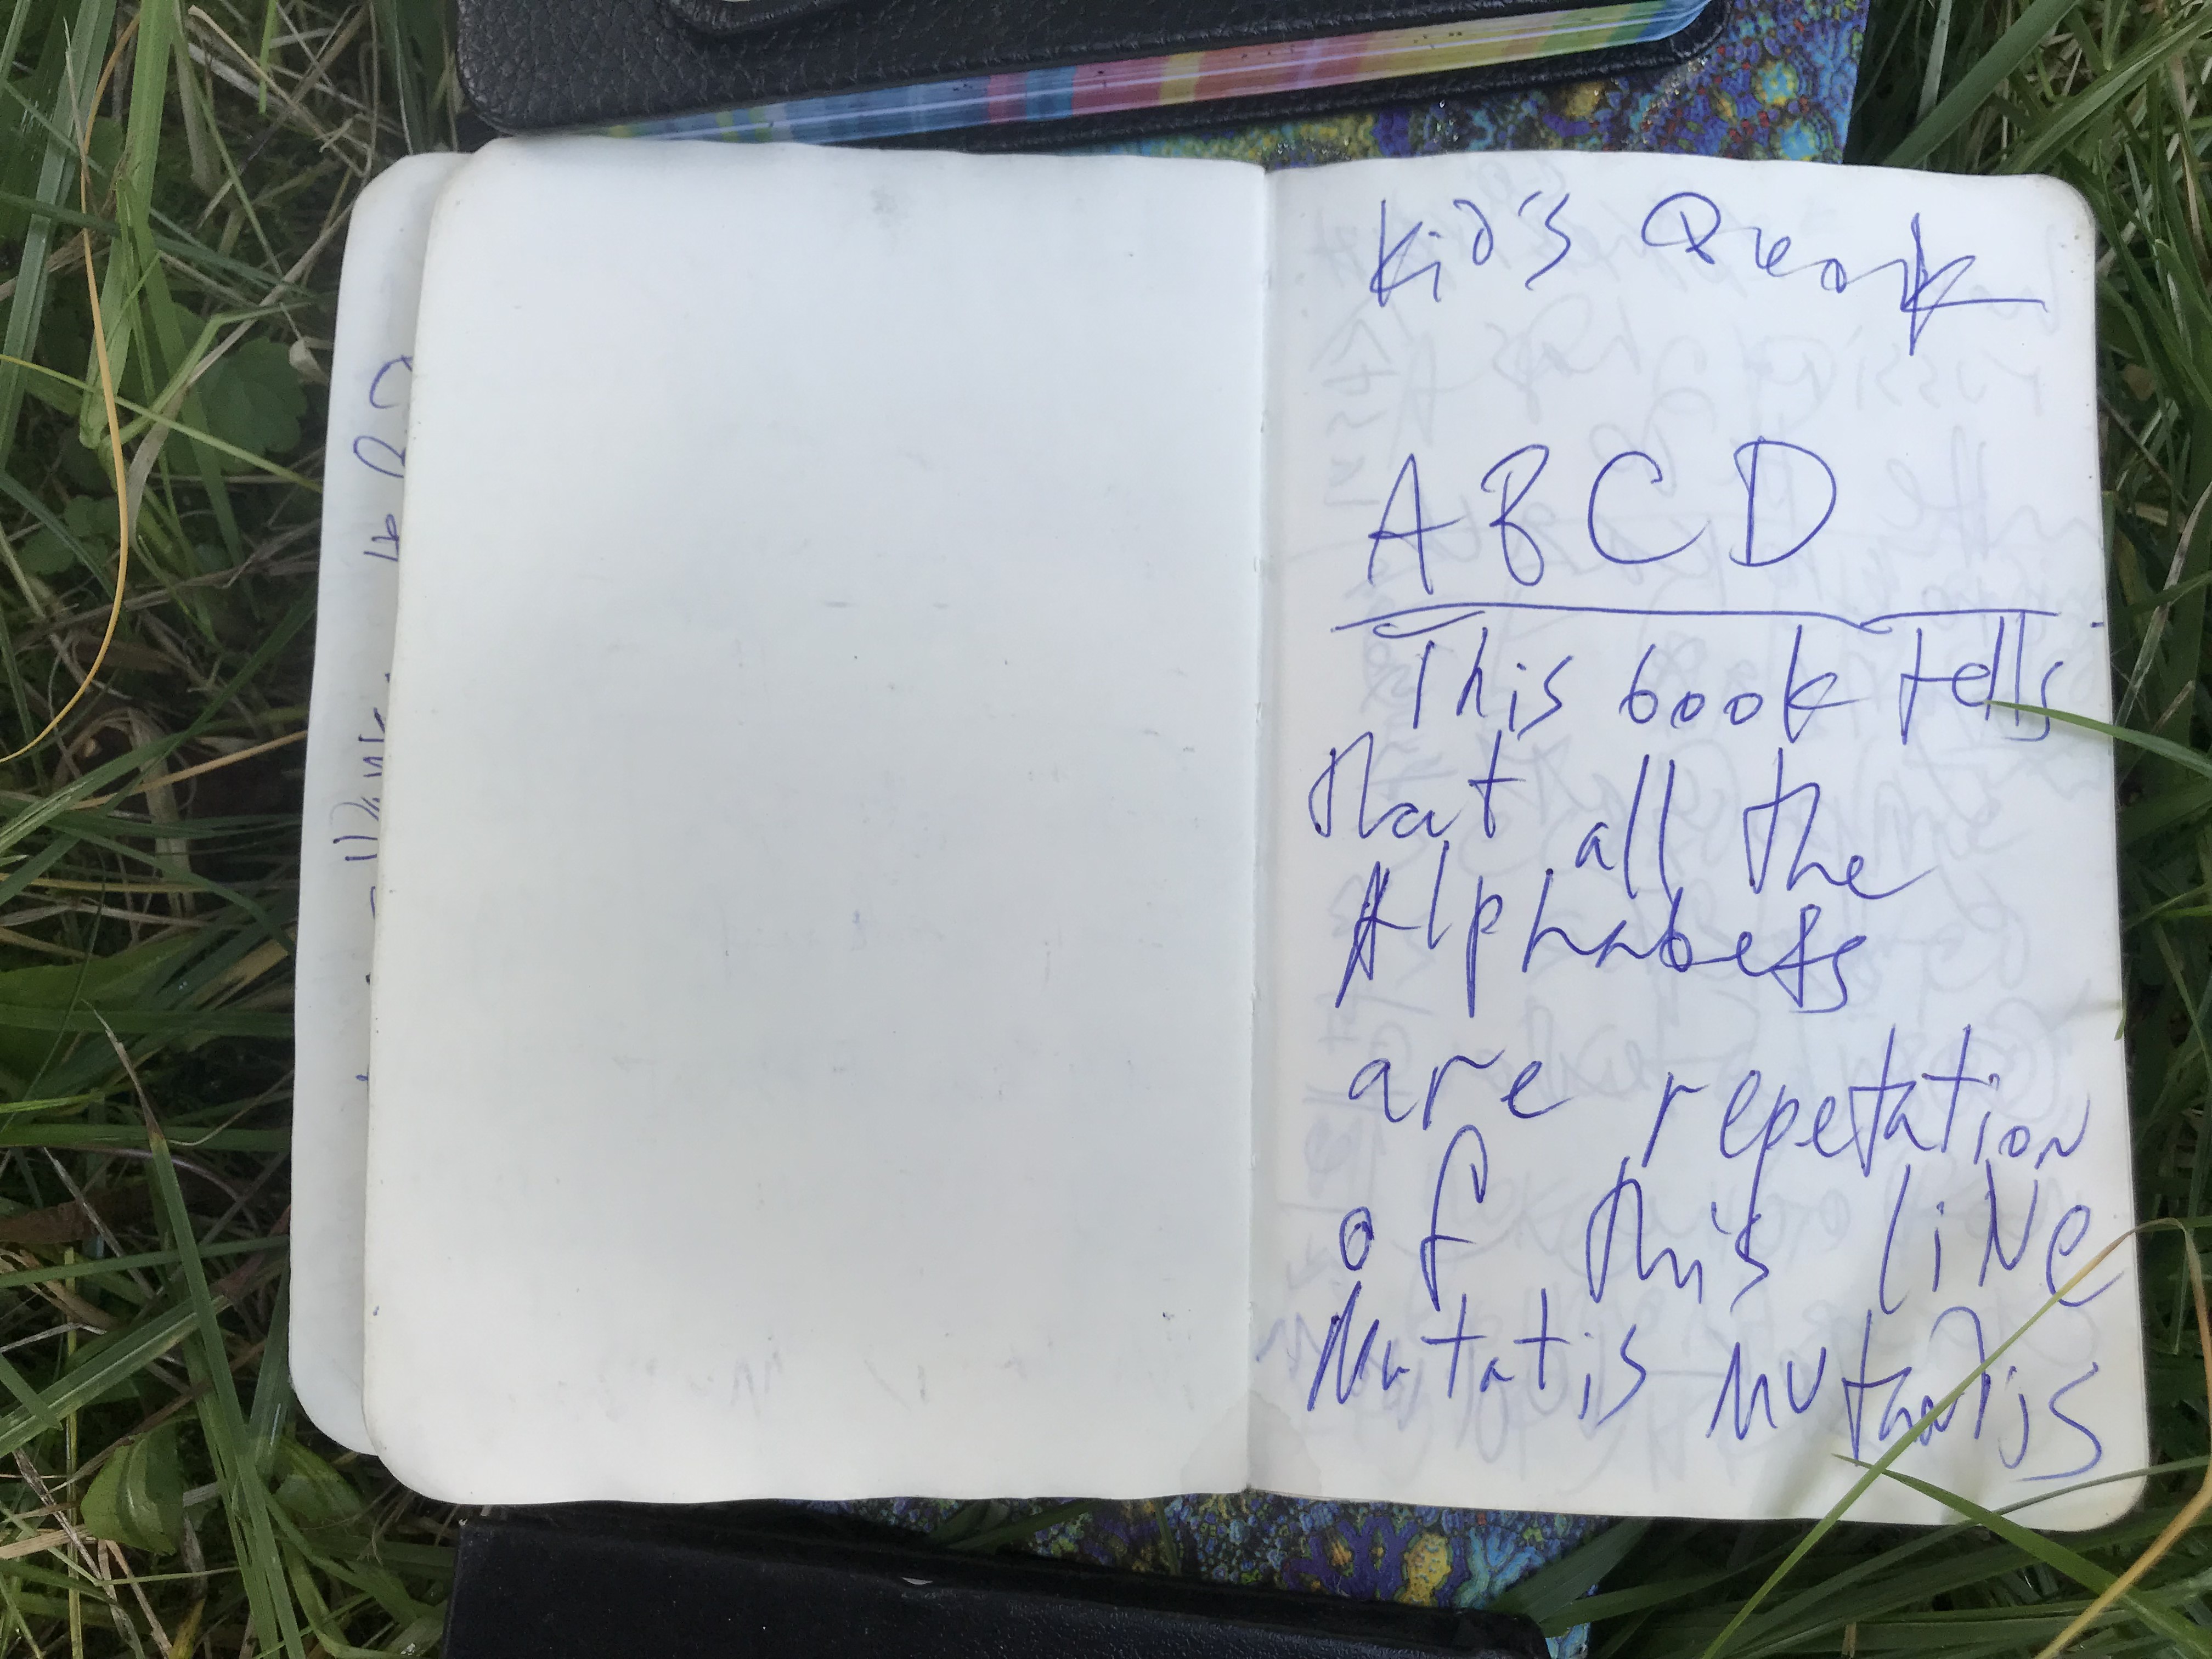 Kid's Quark
A B C D
This book tells
that all the
Alphabets
are repetation
of this line
Mutatis mutandis